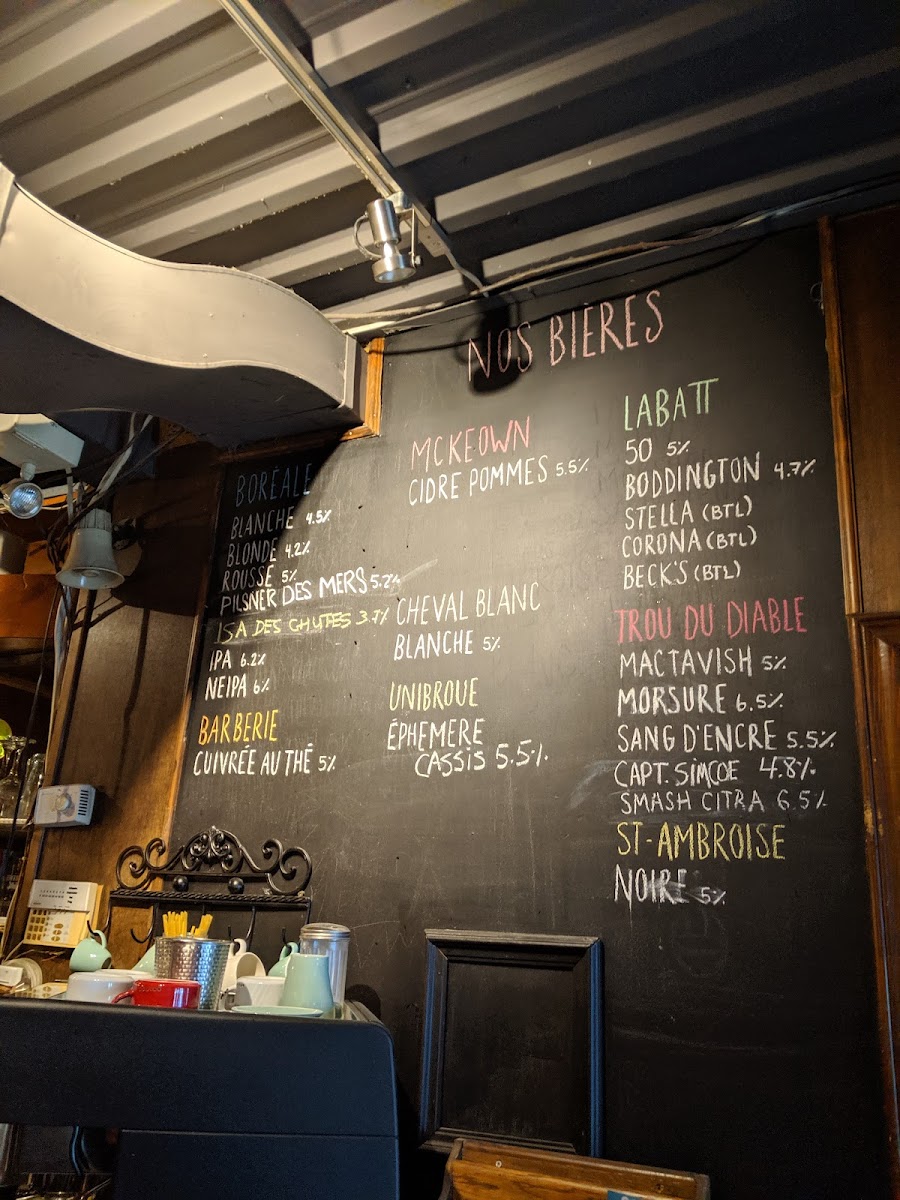 NOS BIÈRES
BORÉALE
BLANCHE 4.5%
BLONDE 4.2%
ROUSSE 5%
PILSNER DES MERS 5.2%
ISA DES CHUTES 3.7%
IPA 6.2%
NEIPA 6%
BARBERIE
CUIVRÉE AU THÉ 5%
MCKEOWN
CIDRE POMMES 5.5%
CHEVAL BLANC
BLANCHE 5%
UNIBROUE
ÉPHEMERE
CASSIS 5.5%
LABATT
50 5%
BODDINGTON 4.7%
STELLA (BTL)
CORONA (BTL)
BECK'S (BTL)
TROU DU DIABLE
MACTAVISH 5%
MORSURE 6.5%
SANG D'ENCRE 5.5%
CAPT. SIMCOE 4.8%
SMASH CITRA 6.5%
ST-AMBROISE
NOIRE 5%